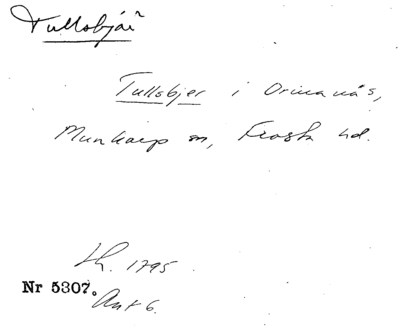 Tullsbjär
Tullsbjer i Ormanäs,
Munkarp sn, Frosta hd.
Lh. 1795
Nr 5307.
Ant 6.